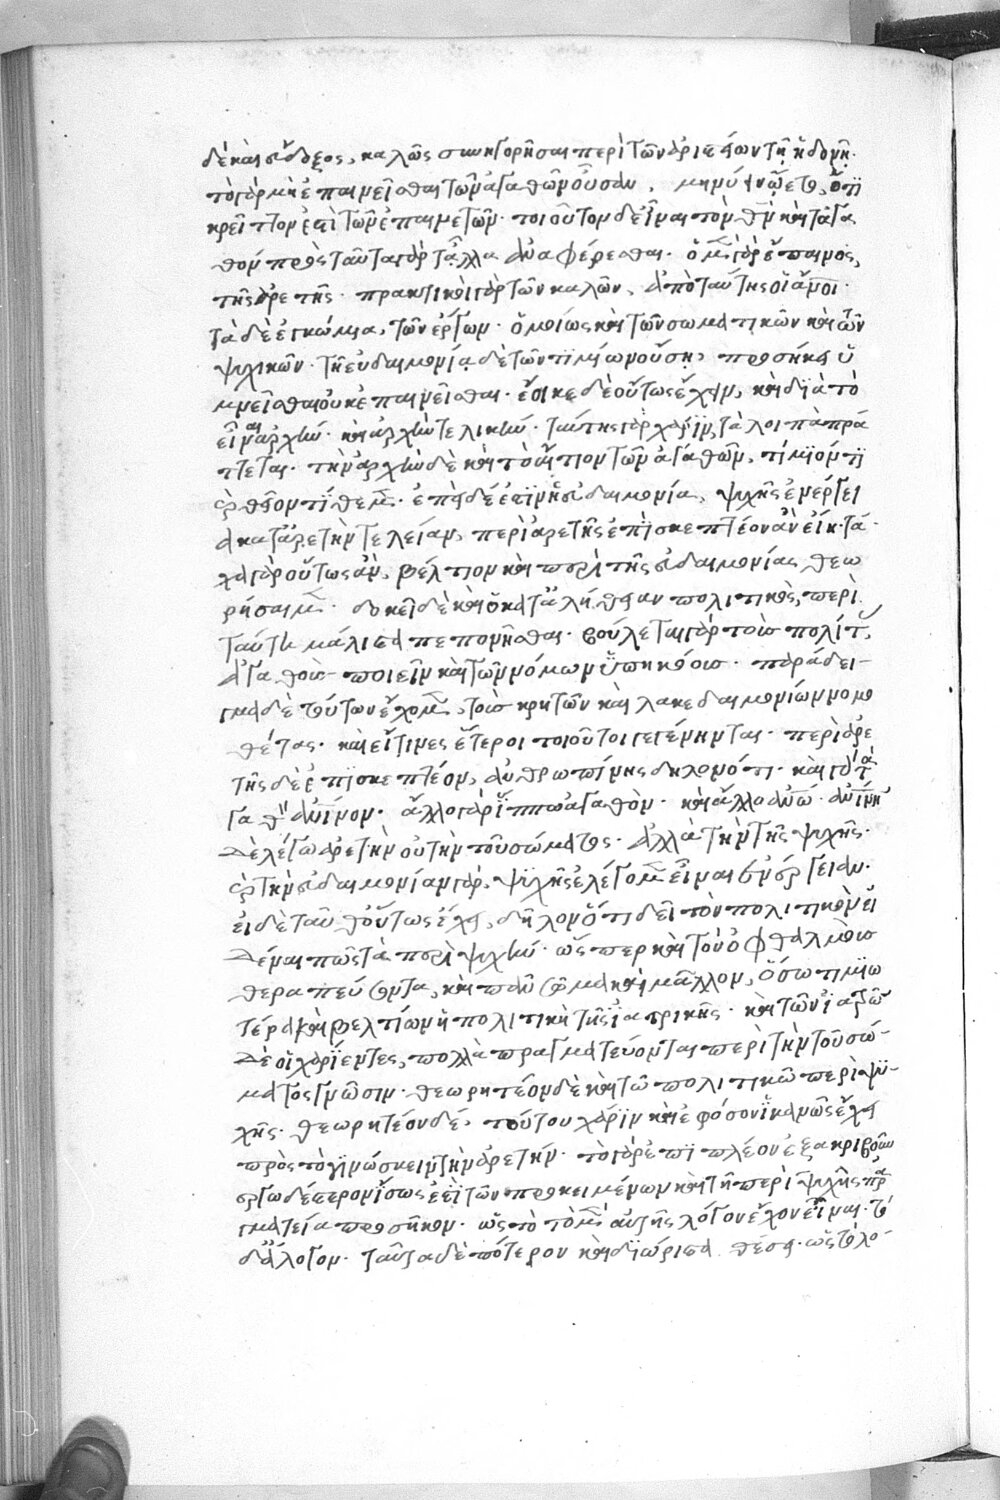 δὲ καὶ εὔδοξος, καλῶς συνηγορῆσαι περὶ τῶν ἀριστίων τῇ ἡδονῇ·
τὸ γὰρ μὴ ἐπαινεῖσθαι τῶν ἀγαθῶν οὖσαν, μηνύειν ᾤετο, ὅτι
κρεῖττον ἐστὶ τῶν ἐπαινετῶν· τοιοῦτον δ' εἶναι τὸν θν καὶ τἀγα
θόν πρὸς ταῦτα γὰρ τἆλλα ἀναφέρεσθαι· ὁ μὲν γὰρ ἔπαινος,
τῆς ἀρετῆς· πρακτικοὶ γὰρ τῶν καλῶν, ἀπὸ ταύτης οἱ ἄνοι·
τὰ δὲ ἐγκώμια, τῶν ἔργων· ὁμοίως καὶ τῶν σωματικῶν καὶ τῶν
ψυχικῶν· τῇ εὐδαιμονίᾳ δὲ τῶν τιμίων οὔσῃ, προσήκει ὑ
μνεῖσθαι οὐκ ἐπαινεῖσθαι· ἔοικε δὲ οὕτως ἔχειν, καὶ διὰ τὸ
εἶναι ἀρχὴν· καὶ ἀρχὴν τελικὴν· ταύτης γὰρ χάριν, τὰ λοιπὰ πρά
ττεται· τὴν ἀρχὴν δὲ καὶ τὸ αἴτιον τῶν ἀγαθῶν, τίμιόν τι
καὶ θεῖον τίθεμεν· ἐπεὶ δέ ἐστιν ἡ εὐδαιμονία, ψυχῆς ἐνέργει
α κατ' ἀρετὴν τελείαν, περὶ ἀρετῆς ἐπισκεπτέον ἂν εἴη· τά
χα γὰρ οὕτως ἂν, βέλτιον καὶ περὶ τῆς εὐδαιμονίας θεω
ρήσαιμεν· δοκεῖ δὲ καὶ ὁ κατ' ἀλήθειαν πολιτικὸς, περὶ
ταύτην μάλιστα πεπονῆσθαι· βούλεται γὰρ τοὺς πολίτ
ἀγαθοὺς ποιεῖν καὶ τῶν νόμων ὑπηκόους· παράδει-
γμα δὲ τούτων ἔχομεν, τοὺς κρητῶν καὶ λακεδαιμονίων νομο
θέτας· καὶ εἴ τινες ἕτεροι τοιοῦτοι γεγένηνται· περὶ ἀρε
τῆς δὲ ἐπισκεπτέον, ἀνθρωπίνης δηλονότι· καὶ γὰρ τ
γαθὸν ἀνινον· ἄλλο γὰρ ἵππου ἀγαθὸν· καὶ ἄλλο ἀνου· ἀνινην
δὲ λέγω ἀρετὴν οὐ τὴν τοῦ σώματος· ἀλλὰ τὴν τῆς ψυχῆς·
καὶ τὴν εὐδαιμονίαν γὰρ, ψυχῆς ἐλέγομεν εἶναι ἐνέργειαν·
εἰ δὲ ταῦθ' οὕτως ἔχει, δῆλον ὅτι δεῖ τὸν πολιτικὸν εἰ
δέναι πῶς τὰ περὶ ψυχὴν· ὥσπερ καὶ τὸν ὀφθαλμοὺς
θεραπεύοντα, καὶ πᾶν σῶμα καὶ μᾶλλον, ὅσῳ τιμιω
τέρα καὶ βελτίων ἡ πολιτικὴ τῆς ἰατρικῆς· καὶ τῶν ἰατρῶν
δὲ οἱ χαρίεντες, πολλὰ πραγματεύονται περὶ τὴν τοῦ σώ-
ματος γνῶσιν· θεωρητέον δὲ καὶ τῷ πολιτικῷ περὶ ψυ-
χῆς· θεωρητέον δέ, τούτου χάριν καὶ ἐφ' ὅσον ἱκανῶς ἔχει
πρὸς τὸ γινώσκειν τὴν ἀρετήν· τὸ γὰρ ἐπὶ πλέον ἐξακριβοῦν
ἐργωδέστερον ἴσως ἐστὶ τῶν προκειμένων καὶ τῇ περὶ ψυχῆς πρα
γματείᾳ προσῆκον· ὡς τὸ τὸ μὲν αὐτῆς λόγον ἔχον εἶναι· τὸ
δ' ἄλογον· ταῦτα δὲ πότερον καὶ διώρισται θέσει· ὡς τὸ λο-